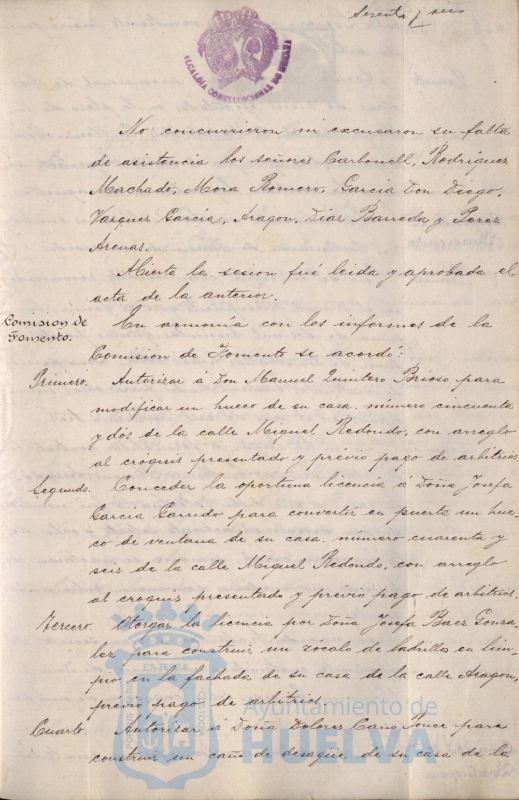 Sesenta y seis
ALCALDIA CONSTITUCIONAL DE HUELVA
No concurrieron ni excusaron su falta
de asistencia los señores Carbonell, Rodriguez
Machado, Mora Romero, Garcia Don Diego,
Vazquez Garcia, Aragon, Diaz Barreda y Perez
Arenas.
Abierta la sesion fué leida y aprobada el
acta de la anterior.
Comision de
Fomento.
En armonia con los informes de la
Comision de Fomento se acordó:
Primero. Autorizar á Don Manuel Quintero Brioso para
modificar un hueco de su casa número cincuenta
y dós de la calle Miguel Redondo, con arreglo
al cróquis presentado y prévio pago de arbitrios.
Segundo. Conceder la oportuna licencia á Doña Josefa
Garcia Garrido para convertir en puerta un hue-
co de ventana de su casa, número cuarenta y
seis de la calle Miguel Redondo, con arreglo
al croquis presentado y prévio pago de arbitrios.
Tercero. Otorgar la licencia por Doña Josefa Baez Gonza
lez para construir un zocalo de ladrillos en lim-
pio en la fachada de su casa de la calle Aragon,
prévio pago de arbitrios.
Cuarto. Autorizar á Doña Dolores Cano Ponce para
construir un caño de desagüe, de su casa de la
Ayuntamiento de
HUELVA